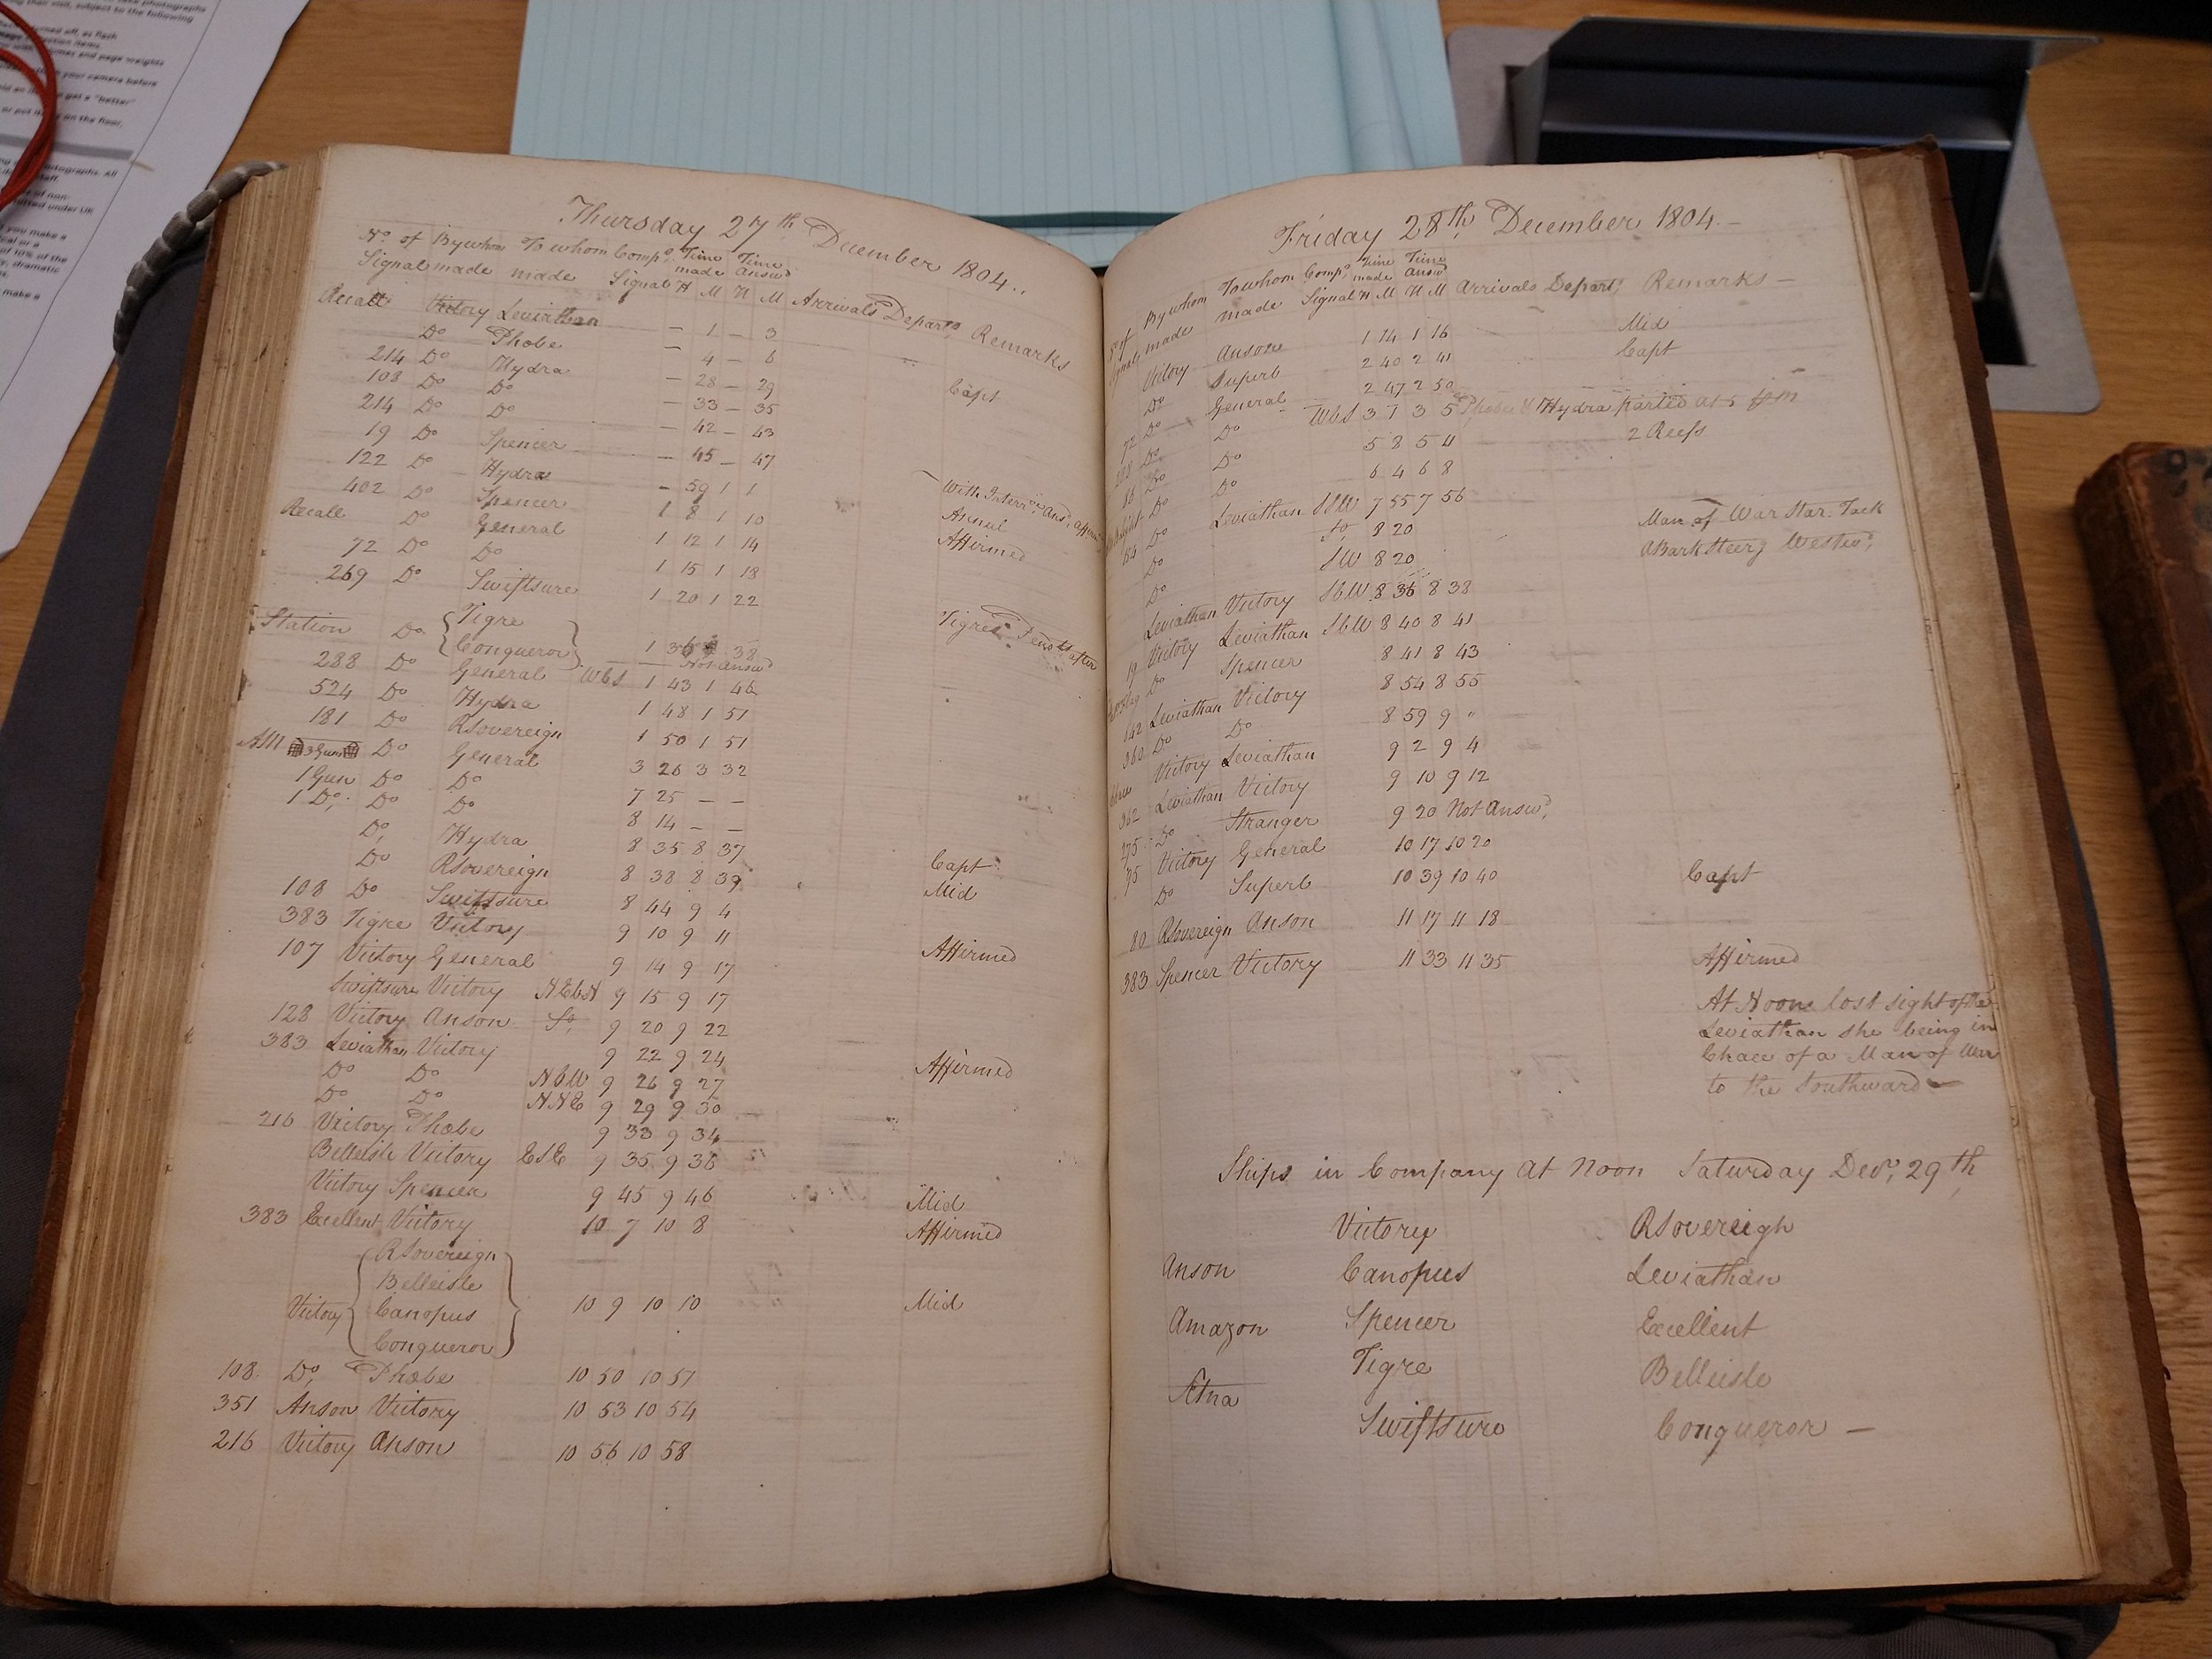 ke photographs
g their visit, subject to the following
ned off, as flash
and page weights
your camera before
get a "better"
or put on the floor,
otographs. All
staff.
of non-
mitted under UK
you make a
of 10% of the
dramatic
make a
Thursday 27th December 1804..
No. of By whom To whom Compo. Time Time
Signal made made Signal made Answd
H M H M Arrivals Departs Remarks
Recall Victory Leviathan — 1 — 3
Do Phobe — 4 — 6
214 Do Hydra — 28 — 29 Capt
108 Do Do — 33 — 35
214 Do Do — 42 — 43
19 Do Spencer — 45 — 47
122 Do Hydra — 59 1 1
402 Do Spencer 1 8 1 10 With Interr. Ans.
Recall Do General 1 12 1 14 Annul
72 Do Do 1 15 1 18 Affirmed
269 Do Swiftsure 1 20 1 22
Station Do { Tigre
Conqueror } 1 36 38 Tigre's after
Not Answd
288 Do General WbS 1 43 1 46
524 Do Hydra 1 48 1 51
181 Do RSovereign 1 50 1 51
AM 3 Guns Do General 3 26 3 32
1 Gun Do Do 7 25 — —
1 Do. Do Do 8 14 — —
Do, Hydra 8 35 8 37
Do RSovereign 8 38 8 39 Capt
108 Do Swiftsure 8 44 9 4 Mid
383 Tigre Victory 9 10 9 11
107 Victory General 9 14 9 17 Affirmed
Swiftsure Victory NEbN 9 15 9 17
128 Victory Anson So, 9 20 9 22
383 Leviathan Victory 9 22 9 24
Do Do NbW 9 26 9 27 Affirmed
Do Do NNE 9 29 9 30
216 Victory Phobe 9 33 9 34
Belleisle Victory ESE 9 35 9 36
Victory Spencer 9 45 9 46 Mid
383 Excellent Victory 10 7 10 8 Affirmed
Victory { RSovereign
Belleisle
Canopus 10 9 10 10 Mid
Conqueror }
108 Do, Phobe 10 50 10 51
351 Anson Victory 10 53 10 54
216 Victory Anson 10 56 10 58
Friday 28th December 1804.—
No. of By whom To whom Compo. Time Time
made made Signal made Answd
H M H M Arrivals Departs Remarks —
Victory Anson 1 14 1 16 Mid
Do Superb 2 40 2 41 Capt
72 Do General 2 47 2 50
Do Do WbS 3 7 3 5 Phobe & Hydra parted at 5 pm
86 Do Do 5 8 5 11 2 Reefs
Do Do 6 4 6 8
64 Do Leviathan SSW 7 55 7 56
Do So, 8 20 Man of War Star. Tack
Do SW 8 20 A Bark Steerg Westwd,
Leviathan Victory SbW 8 36 8 38
19 Victory Leviathan SbW 8 40 8 41
Do Spencer 8 41 8 43
142 Leviathan Victory 8 54 8 55
360 Do Do 8 59 9 "
Victory Leviathan 9 2 9 4
362 Leviathan Victory 9 10 9 12
275 Do Stranger 9 20 Not Answd,
75 Victory General 10 17 10 20
Do Superb 10 39 10 40 Capt
80 RSovereign Anson 11 17 11 18
383 Spencer Victory 11 33 11 35 Affirmed
At Noon lost sight of the
Leviathan she being in
Chace of a Man of War
to the Southward —
Ships in Company At Noon Saturday Decr, 29th,
Victory RSovereigh
Anson Canopus Leviathan
Amazon Spencer Excellent
Tigre Belleisle
Ætna
Swiftsure Conqueror —